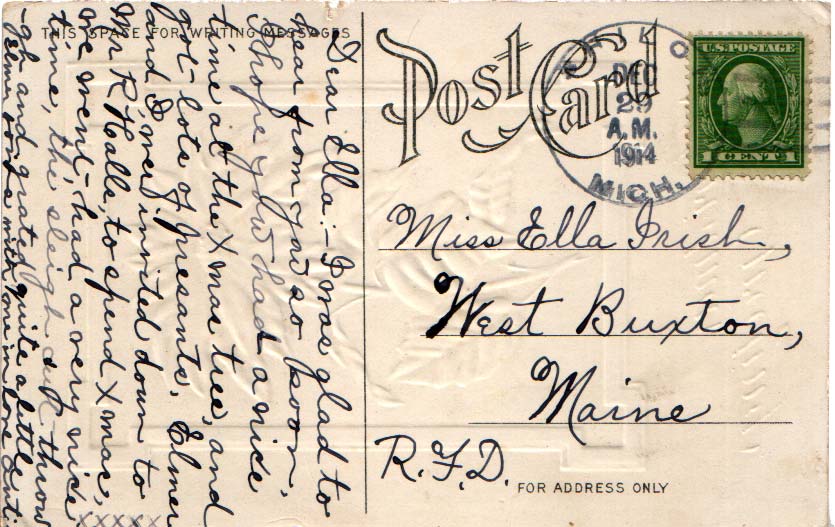 THIS SPACE FOR WRITING MESSAGES
Post Card
DEC
29
A.M.
1914
MICH.
U.S. POSTAGE
1 CENT 1
Dear Ella:- I was glad to
hear from you so soon.
I hope you had a nice
time at the Xmas tree, and
got lots of presants. Elmer
and I, were invited down to
Mr R Halls, to spend Xmas,
we went had a very nice
time, the sleigh thrown
gh and grated quite a little
Elmer with me in love
XXXXX
Miss Ella Irish,
West Buxton,
Maine
R.F.D.
FOR ADDRESS ONLY